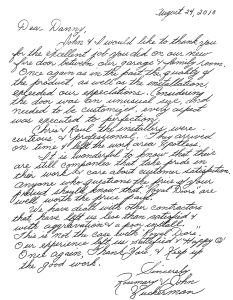 August 24, 2010
Dear Danny,
John & I would like to thank you
for the excellent job you did on our new
fire door between our garage & family room.
Once again as in the past the quality of
the product, as well as the installation,
exceeded our expectations. Considering
the door was an unusual size, and
needed to be customized every aspect
was executed to perfection.
Chris & the installers were
courteous & professional. They arrived
on time & left the work area spotless.
It is wonderful to know that there
are still companies that take pride in
their work & care about customer satisfaction.
Anyone who questions the price of your
product should know that "Royal Doors" are
well worth the price paid.
We have dealt with other contractors
that have left us less than satisfied &
with aggravation & a poor install.
This is not the case with "Royal Doors".
Our experience left us satisfied & Happy
Once again, Thank You, & Keep up
the good work.
Sincerely,
Rosemary & John